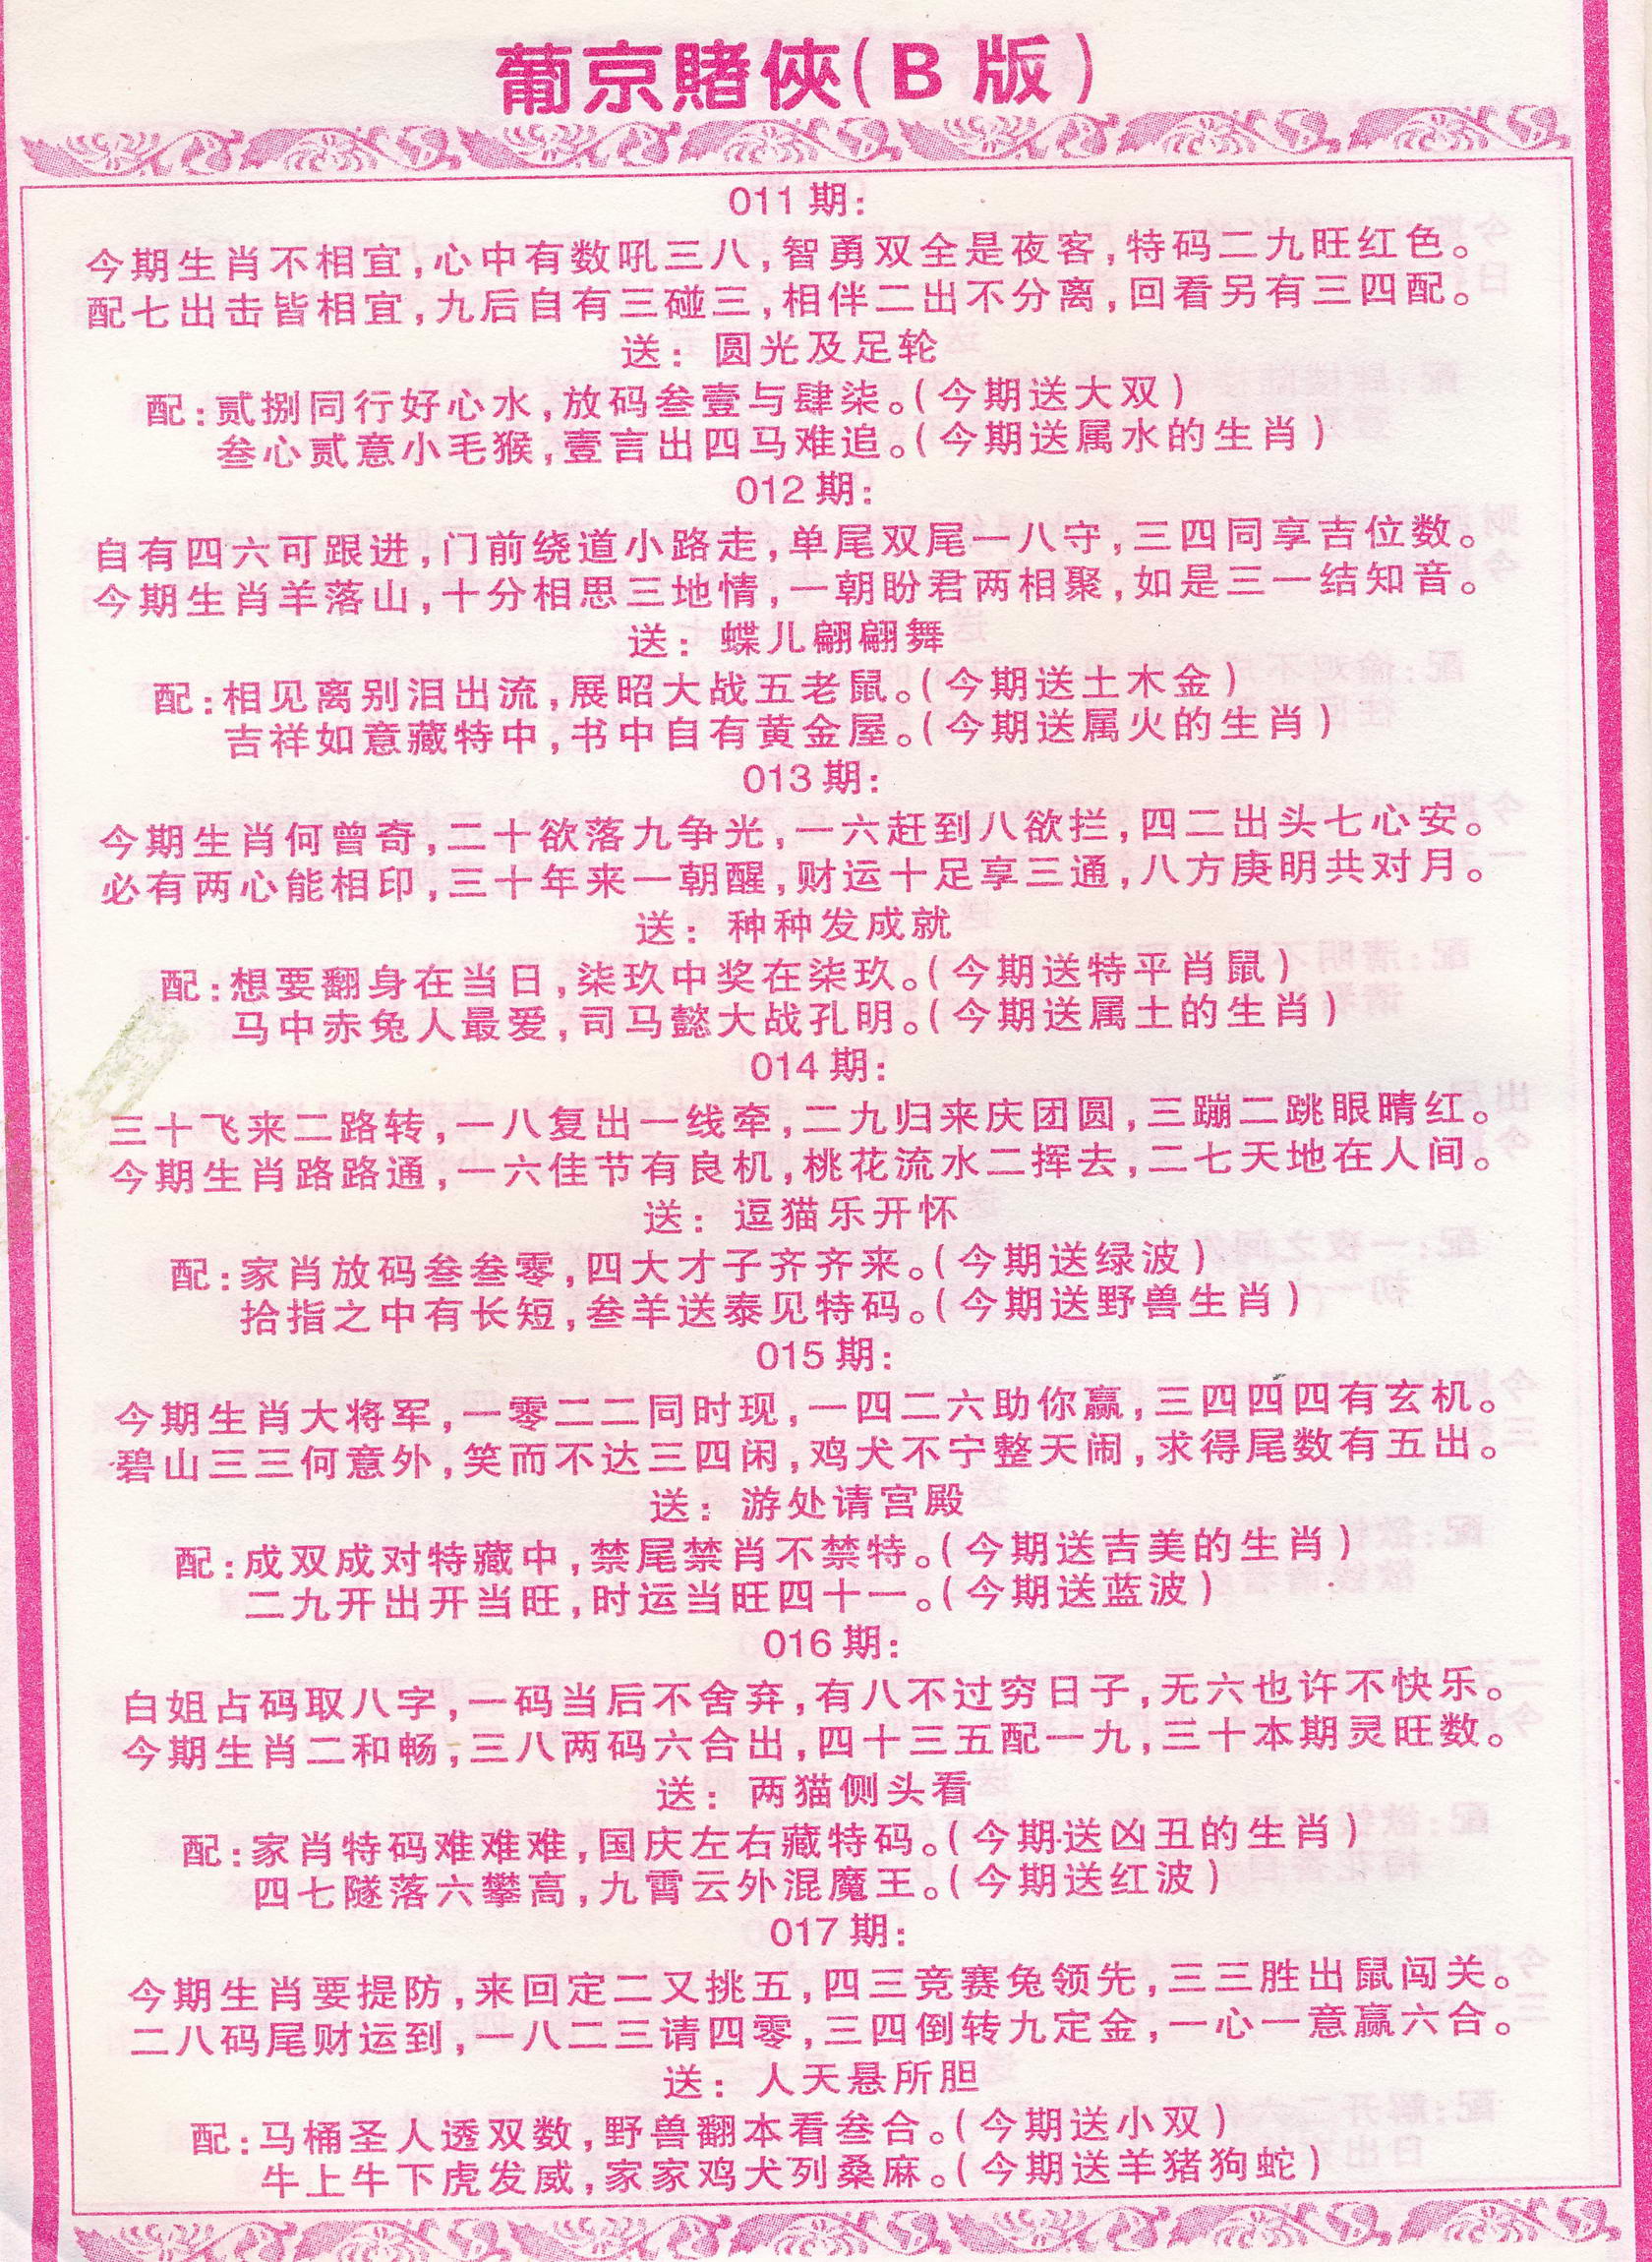 葡京賭俠(B版)
011期:
今期生肖不相宜,心中有数吼三八,智勇双全是夜客,特码二九旺红色。
配七出击皆相宜,九后自有三碰三,相伴二出不分离,回看另有三四配。
送: 圆光及足轮
配:贰捌同行好心水,放码叁壹与肆柒。(今期送大双)
叁心贰意小毛猴,壹言出四马难追。(今期送属水的生肖)
012期:
自有四六可跟进,门前绕道小路走,单尾双尾一八守,三四同享吉位数。
今期生肖羊落山,十分相思三地情,一朝盼君两相聚,如是三一结知音。
送: 蝶儿翩翩舞
配:相见离别泪出流,展昭大战五老鼠。(今期送土木金)
吉祥如意藏特中,书中自有黄金屋。(今期送属火的生肖)
013期:
今期生肖何曾奇,二十欲落九争光,一六赶到八欲拦,四二出头七心安。
必有两心能相印,三十年来一朝醒,财运十足享三通,八方庚明共对月。
送: 种种发成就
配:想要翻身在当日,柒玖中奖在柒玖。(今期送特平肖鼠)
马中赤兔人最爱,司马懿大战孔明。(今期送属土的生肖)
014期:
三十飞来二路转,一八复出一线牵,二九归来庆团圆,三蹦二跳眼晴红。
今期生肖路路通,一六佳节有良机,桃花流水二挥去,二七天地在人间。
送: 逗猫乐开怀
配:家肖放码叁叁零,四大才子齐齐来。(今期送绿波)
拾指之中有长短,叁羊送泰见特码。(今期送野兽生肖)
015期:
今期生肖大将军,一零二二同时现,一四二六助你赢,三四四四有玄机。
碧山三三何意外,笑而不达三四闲,鸡犬不宁整天闹,求得尾数有五出。
送: 游处请宫殿
配:成双成对特藏中,禁尾禁肖不禁特。(今期送吉美的生肖)
二九开出开当旺,时运当旺四十一。(今期送蓝波)
016期:
白姐占码取八字,一码当后不舍弃,有八不过穷日子,无六也许不快乐。
今期生肖二和畅,三八两码六合出,四十三五配一九,三十本期灵旺数。
送: 两猫侧头看
配:家肖特码难难难,国庆左右藏特码。(今期送凶丑的生肖)
四七隧落六攀高,九霄云外混魔王。(今期送红波)
017期:
今期生肖要提防,来回定二又挑五,四三竞赛兔领先,三三胜出鼠闯关。
二八码尾财运到,一八二三请四零,三四倒转九定金,一心一意赢六合。
送: 人天悬所胆
配:马桶圣人透双数,野兽翻本看叁合。(今期送小双)
牛上牛下虎发威,家家鸡犬列桑麻。(今期送羊猪狗蛇)